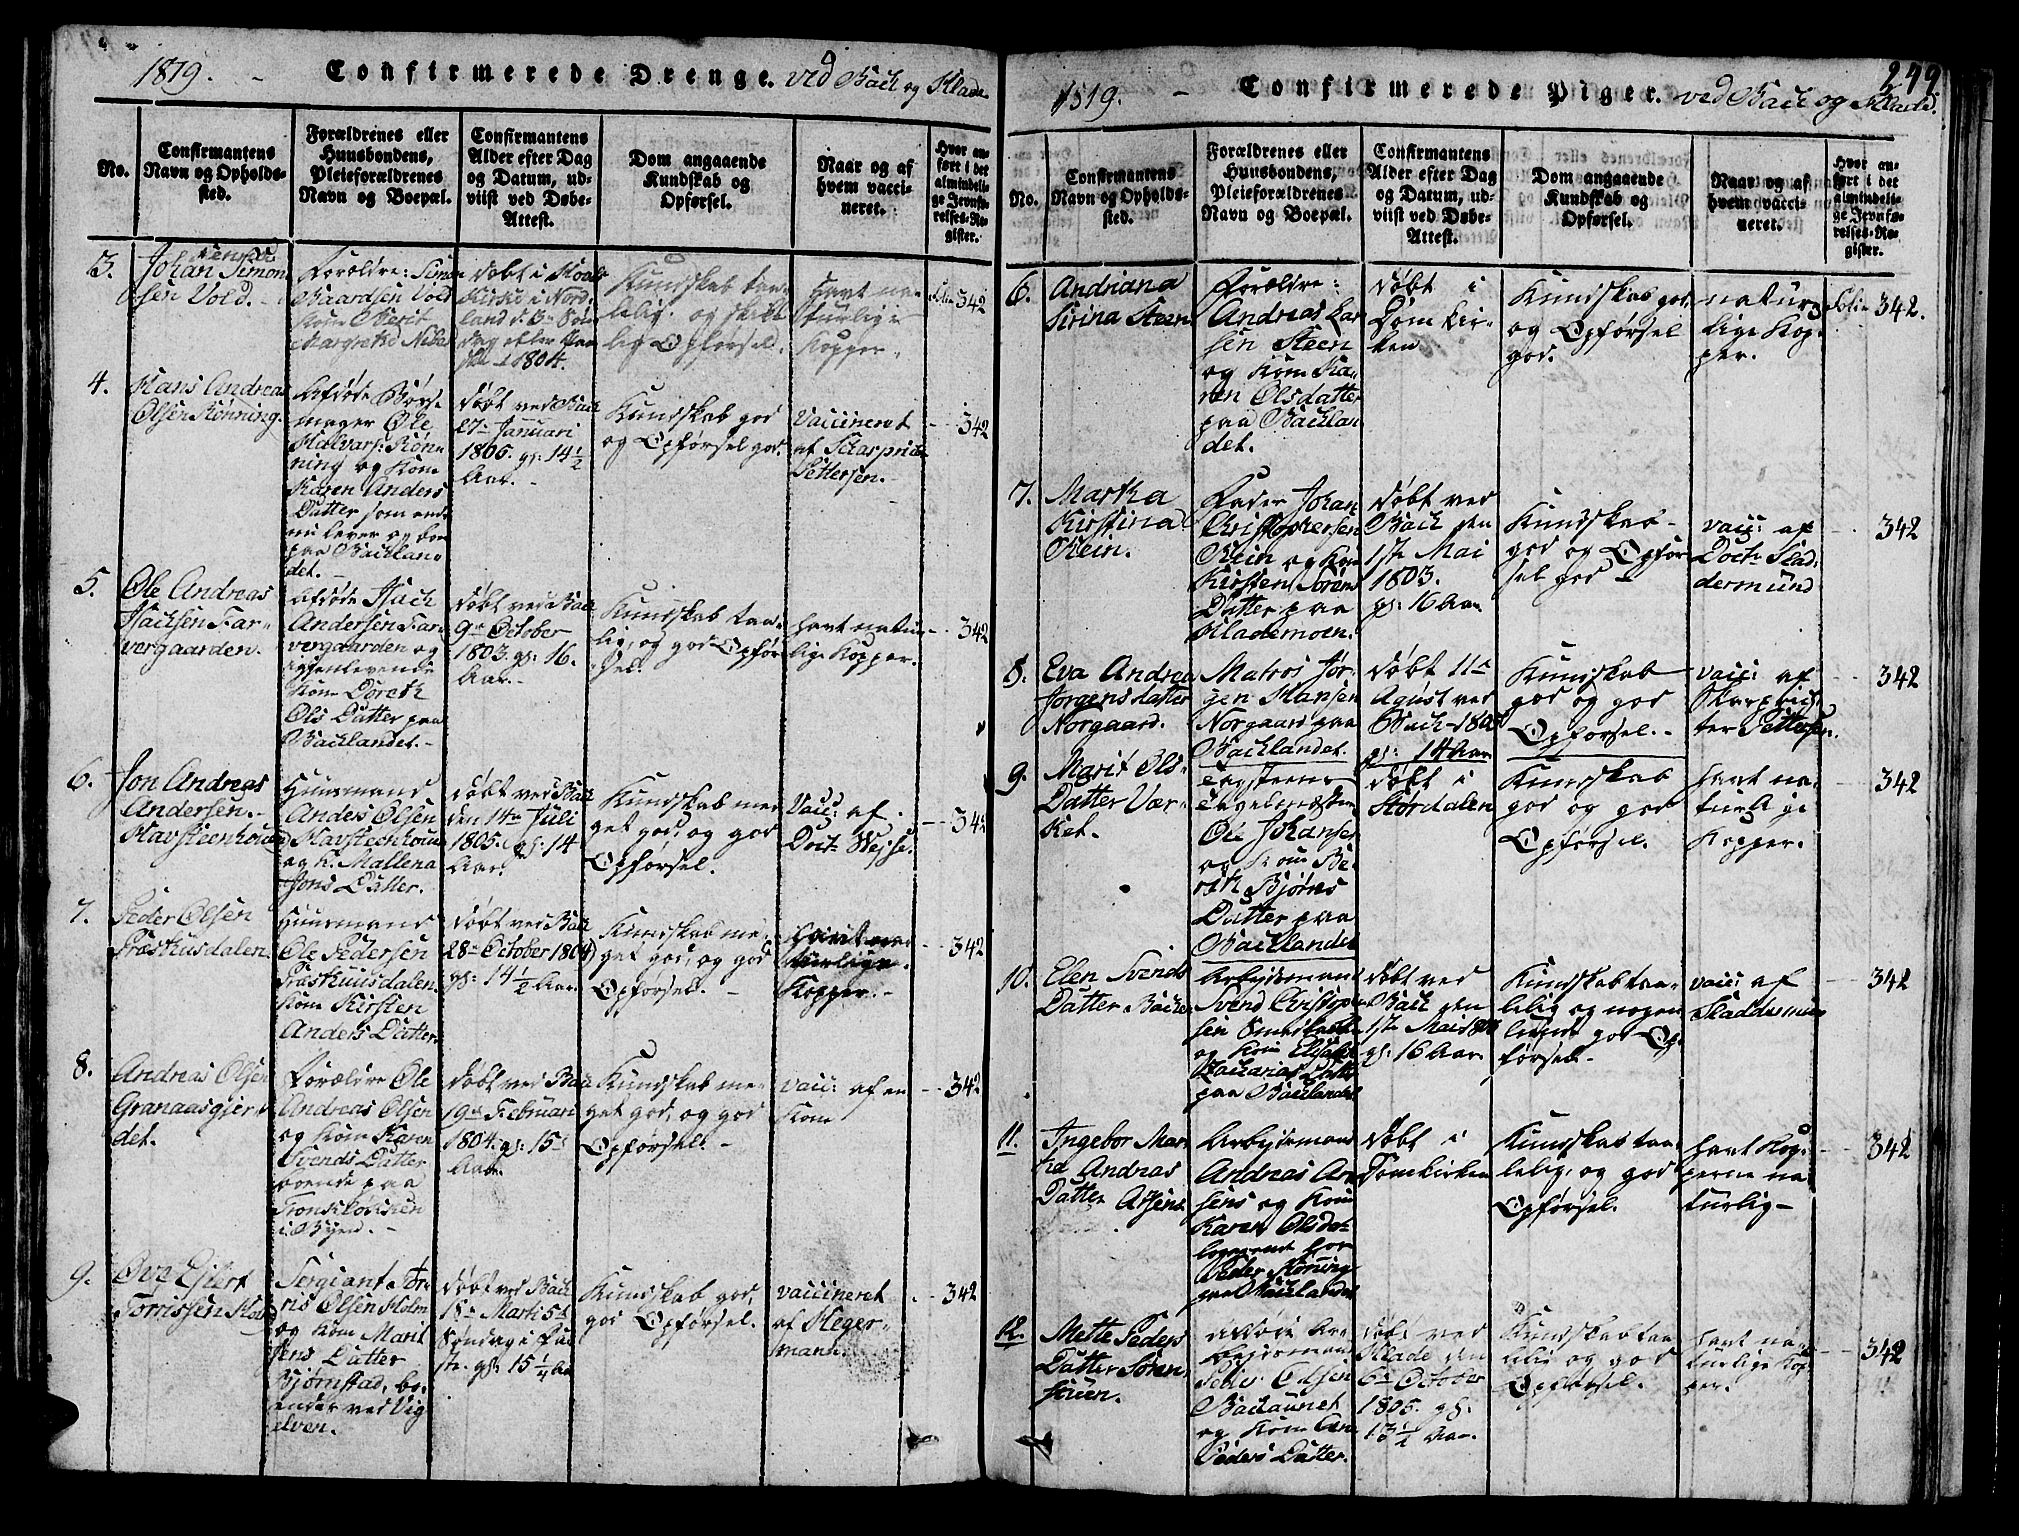 1819. - Confirmerede Drenge. ved Bach og Hlade
No.
Confirmantens
Navn og Opholds-
sted.
Forældrenes eller
Huusbondens,
Pleieforældrenes
Navn og Boepæl.
Confirmantens
Alder efter Dag
og Datum, ud-
viist ved Døbe-
Attest.
Dom angaaende
Kundskab og
Opførsel.
Naar og af
hvem vacci-
neret.
Hvor an-
ført i det
almindeli-
ge Jevnfø-
relses-Re-
gister.
3.
Johan Simon
sen Vold.
Forældre: Simon
Baardsen Vold
Kone Berit
Margrethe
døbt i
Kirke i Nord-
land d.
dag efter Paa
1804.
Kundskab taa-
lelig. og skik
lig Opførsel.
havt na-
turlige
Kopper.
342
4.
Hans Andreas
Olsen Rønning.
Afdøde Børse
mager Ole
Halvars: Røn
ning og Kone
Karen Anders
Datter som end
nu lever og boe
paa Bachlan
det.
døbt ved Bach
27de Januari
1805. gl: 14 1/2
Aar.
Kundskab god
og Opførsel god.
Vaccineret
af Skarpret
Pettersen.
342
5.
Ole Andreas
Isachsen Far-
vergaarden.
Afdøde Isach
Andersen Far
vergaarden og
igjenlevende
Kone Doreth
Ols Datter paa
Bachlandet.
døbt ved Bach
9de October
1803. gl: 16.
Aar.
Kundskab taa-
lig, og god Opfør
sel.
havt natur-
lige Kopper.
342
6.
Jon Andreas
Andersen
Havsteenhoued
Huusmand
Anders Olsen
Havsteenhoued
og K. Mallena
Jons Datter.
døbt ved Bach
den 14de Juli
1805. gl: 14
Aar.
Kundskab me-
get god, og god
Opførsel.
Vacc: af
Doct: Wesse.
342
7.
Peder Olsen
Fræshusdalen.
Huusmand
Ole Pedersen
Fræshuusdalen.
Kone Kirsten
Anders Datter.
døbt ved Bach
28de October 1804
gl: 14 1/2 Aar.
Kundskab me-
get god, og god
Opførsel.
havt na
turlige
Kopper.
342
8.
Andreas Olsen
Granaasgier
det.
Forældre Ole
Andreas Olsen
og Kone Karen
Svends Datter
boende paa
i Byen.
døbt ved Bach
19de Februari
1804. gl: 15
Aar.
Kundskab me-
get god, og god
Opførsel.
vacc: af en
Kone
342
9.
Ove Ejlert
Torrissen Holm
Sergiant Tor-
ris Olsen Holm
og Kone Marit
Jens Datter
Bjørnstad, bo-
ende ved Vig
elven.
døbt ved Bach
18de Marti 5te
Søndag i Faa
ste. gl: 15 1/4 Aar
Kundskab god,
god Opførsel.
vaccineret
af Heger-
mann.
342
1819. - Confirmerede Piger. ved Bach og Hlade.
249
No.
Confirmantens
Navn og Opholds-
sted.
Forældrenes eller
Huusbondens,
Pleieforældrenes
Navn og Boepæl.
Confirmantens
Alder efter Dag
og Datum, ud-
viist ved Døbe-
Attest.
Dom angaaende
Kundskab og
Opførsel.
Naar og af
hvem vacci-
neret.
Hvor an-
ført i det
almindeli-
ge Jevnfø-
relses-Re-
gister.
6.
Andriana
Sirina Steen
Forældre:
Andreas Lar
sen Steen
og Kone Ka-
ren Olsdatter
paa Bachlan
det.
døbt i
Domkir-
ken
Kundskab god,
og Opførsel
god.
natur-
lige Kop-
per.
Folio 342.
7.
Martha
Kirstina
Rein.
Fader Johan
Christophersen
Rein og Kone
Kirsten Sørens
Datter paa
Hlademoen.
døbt ved
Bach den
1ste Mai
1803.
gl: 16 Aar
Kundskab
god og Opfør
sel god
vacc: af
Doct: Stad
dermund
342
8.
Eva Andrea
Jørgensdatter
Norgaard.
Matros Jør-
gen Hansen
Norgaard paa
Bachlandet.
døbt 11te
Agust ved
Bach 1805
gl: 14 Aar
Kundskab
god og god
Opførsel.
vacc: af
Skarpret-
ter Pettersen.
342
9.
Marit Ols-
Datter Vær-
ket.
Ole Johansen
og Kone Be-
rith Bjørns
Datter paa
Bachlandet
døbt i
Størdalen
Kundskab
god og god
Opførsel.
havt na-
turlige
Kopper.
342
10.
Elen Svends
Datter Bach
Arbeidsmand
Svend Christoph
sen
og Kone Elisabet
Zacarias Datter
paa Bachlandet
døbt ved
Bach den
1ste Mai 1803
gl: 16 Aar.
Kundskab taa-
lelig og nogen
lunde god Op-
førsel.
vacc: af
Staddermun
342
11.
Ingebor Mar
tha Andreas
Datter
Arbeidsmand
Andreas
og Kone
Karen Olsdat
logerende hos
Peder Rønning
paa Bachlandet
døbt i
Domkirken
Kundskab taa-
lelig, og god
Opførsel.
havt Kop-
perne na-
turlig
342
12.
Mette Peders
Datter Søren
Afdøde Ar-
beidsmand
Peder Olsen
Bachaunet
og Kone
Peders Datter.
døbt ved
Hlade den
6te October
1805. gl.
13 1/2 Aar.
Kundskab taa-
lelig og god
Opførsel.
havt na-
turlige Kop
per.
342